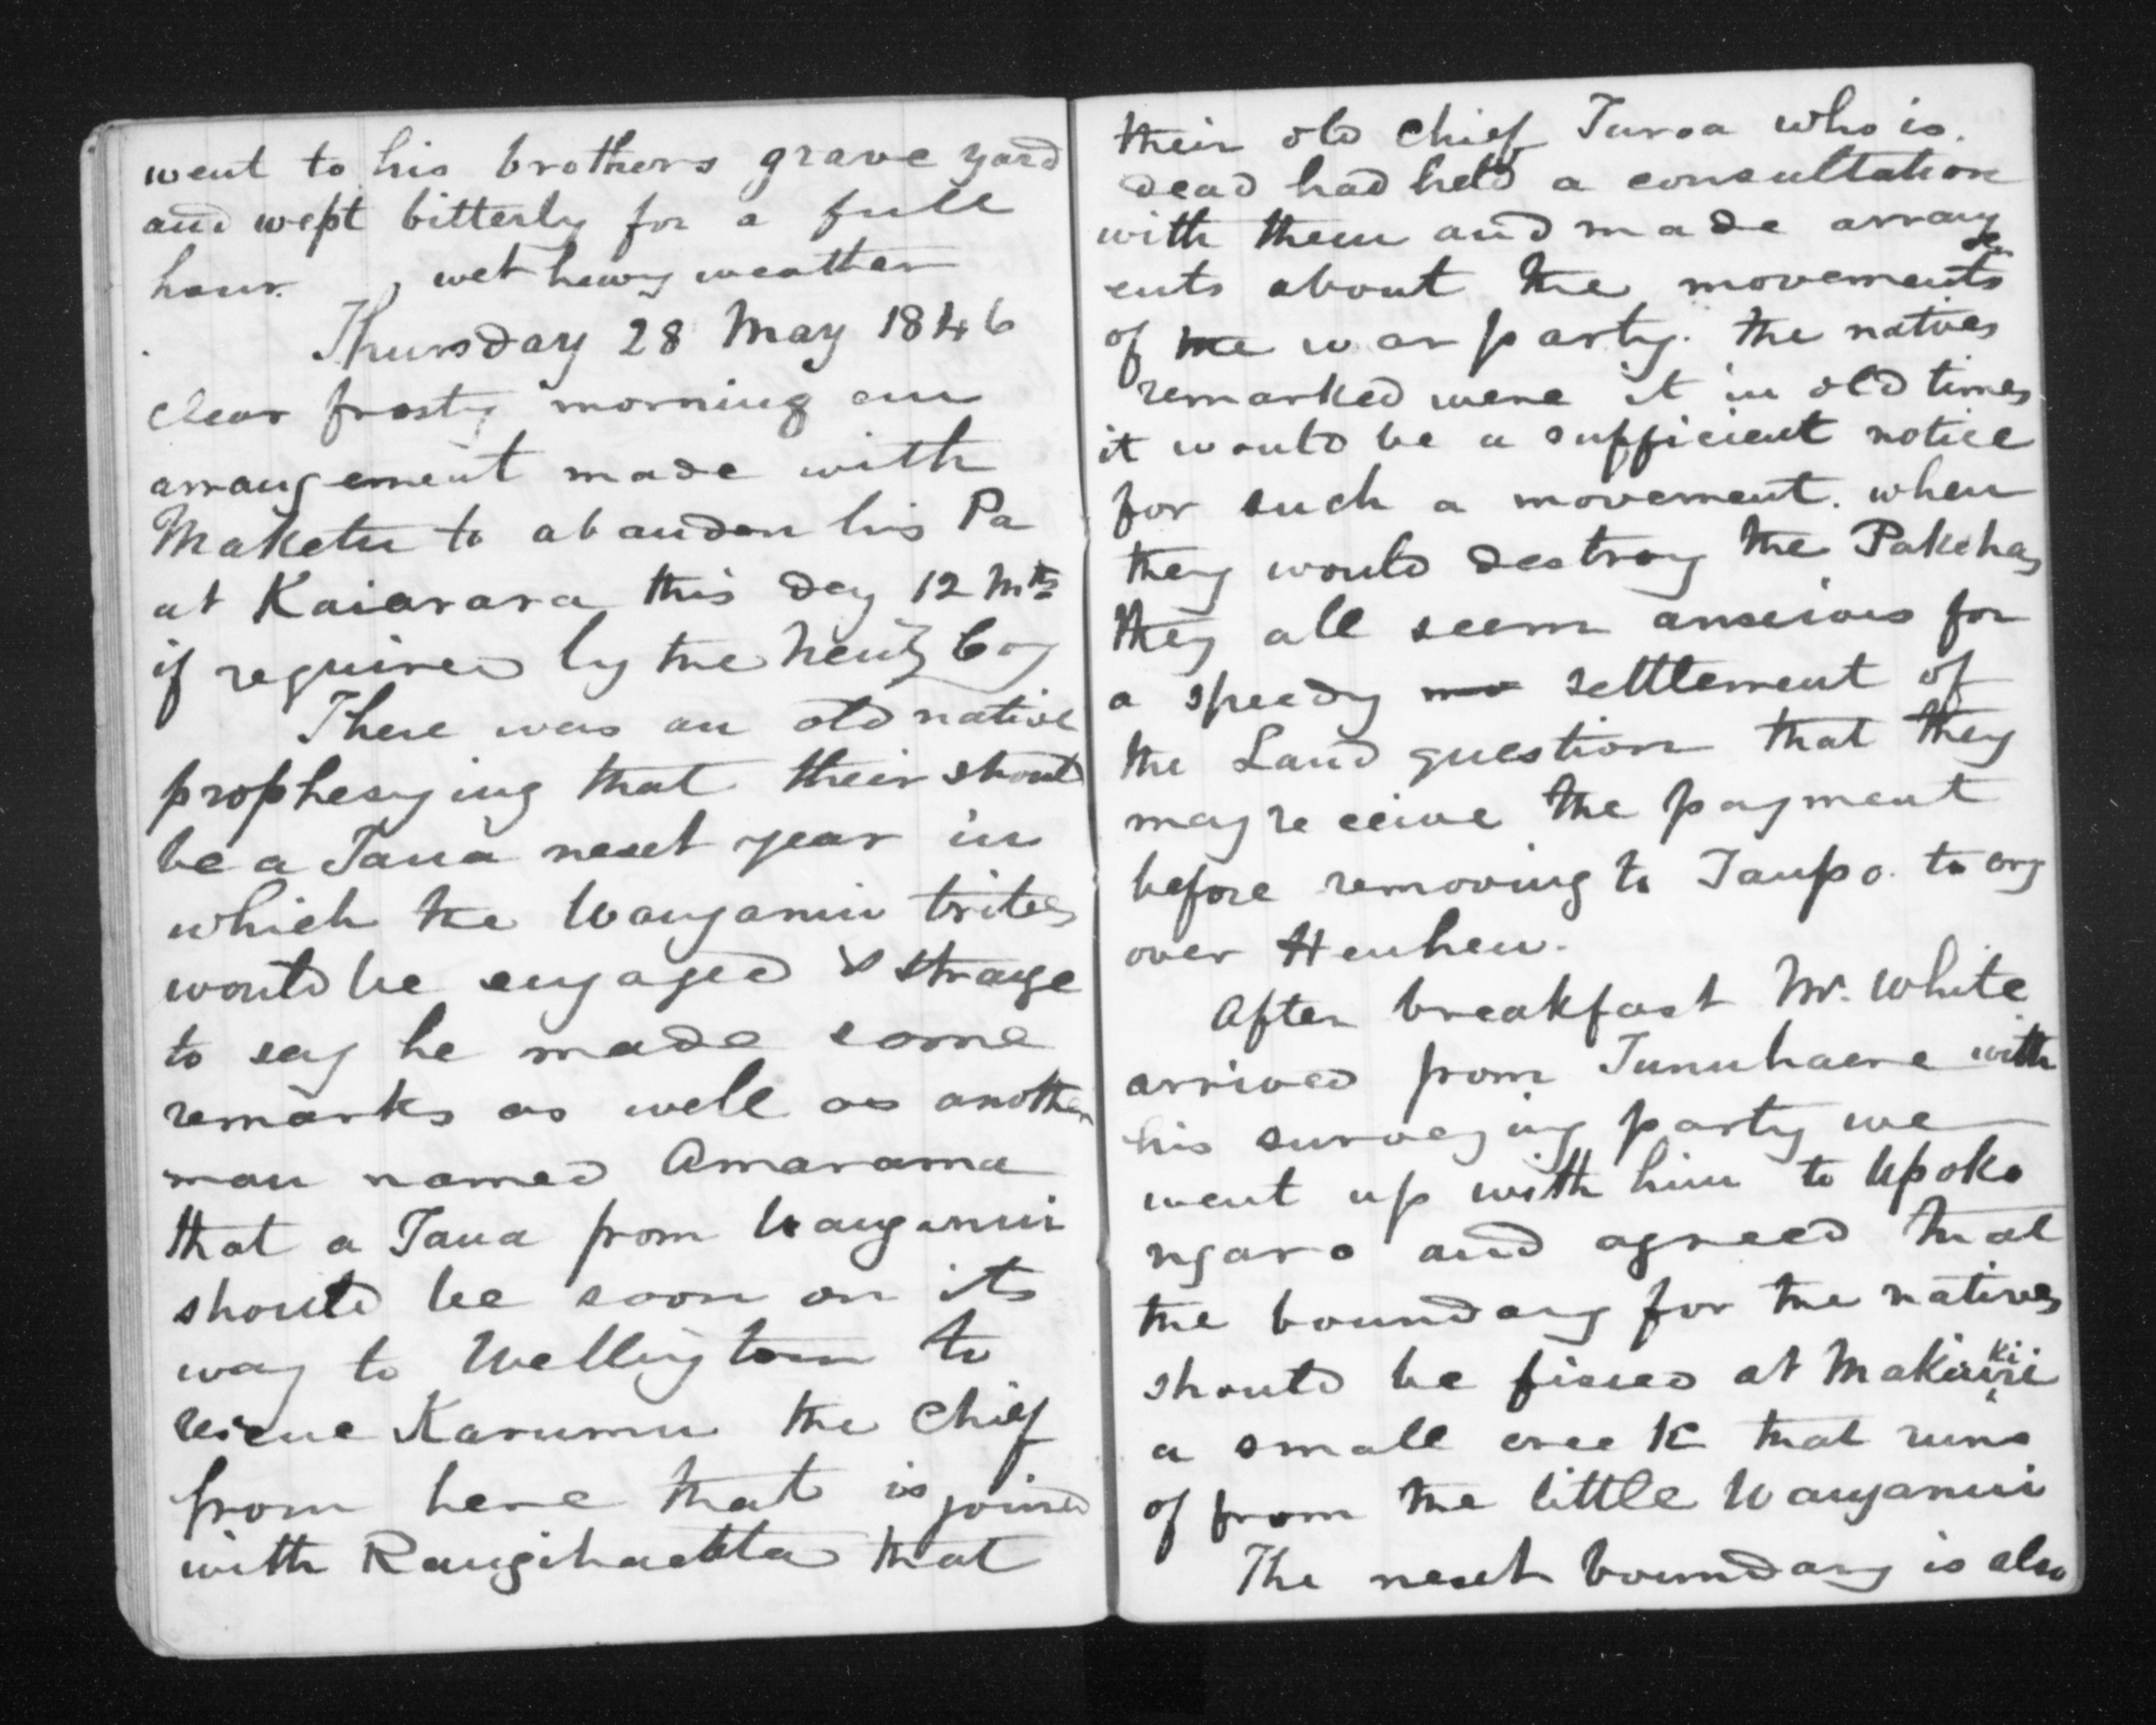 went to his brothers grave yard
and wept bitterly for a full
hour. wet heavy weather
Thursday 28 May 1846
clear frosty morning an
arrangement made with
Maketu to abandon his Pa
at Kaiarara this day 12 Mths
if required by the
There was an old native
prophesying that their should
be a Taua next year in
which the Wanganui tribes
would be engaged & strange
to say he made some
remarks as well as another
man named Amarama
that a Taua from Wanganui
should be soon on its
way to Wellington to
rescue Karumu the Chief
from here that is joined
with Rangihaetta that
their old Chief Turoa who is
dead had held a consultation
with them and made arrangem
ents about the movements
of the war party. the natives
remarked were it in old times
it would be a sufficient notice
for such a movement. when
they would destroy the Pakehas
they all seem anxious for
a speedy settlement of
the Land question that they
may receive the payment
before removing to Taupo to cry
over Heuheu.
After breakfast Mr. White
arrived from Tunuhaere with
his surveying party we
went up with him to Upoko
ngaro and agreed that
the boundary for the natives
should be fixed at
a small creek that runs
of from the little Wanganui
The next boundary is also